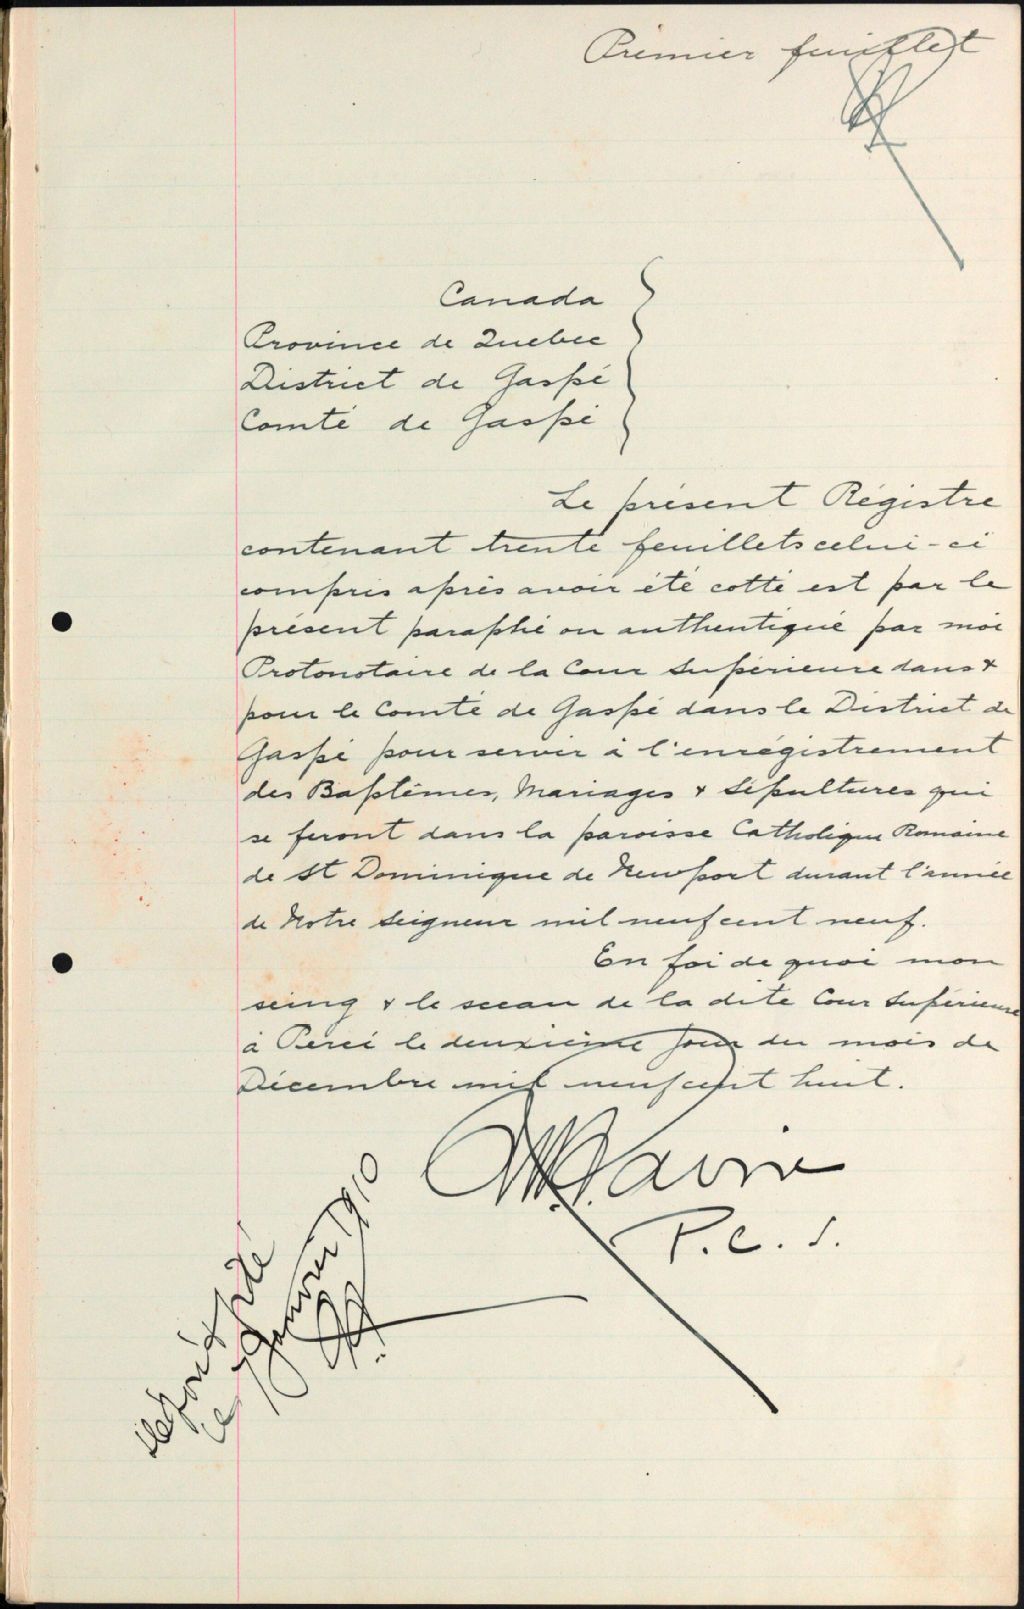 Premier feuillet
Canada
Province de Quebec
District de Gaspé
Comté de Gaspé
Le présent Régistre
contenant trente feuillets celui-ci
compris après avoir été cotté est par le
présent paraphé ou authentiqué par moi
Protonotaire de la Cour Supérieure dans &
pour le Comté de Gaspé dans le District de
Gaspé pour servir à l'enrégistrement
des Baptêmes, Mariages & Sépultures qui
se feront dans la paroisse Catholique Romaine
de St Dominique de Newport durant l'année
de Notre Seigneur mil neuf cent neuf.
En foi de quoi mon
seing & le sceau de la dite Cour Supérieure
à Percé le deuxième jour du mois de
Décembre mil neuf cent huit.
P.C.S.
ce 7 Janvier 1910